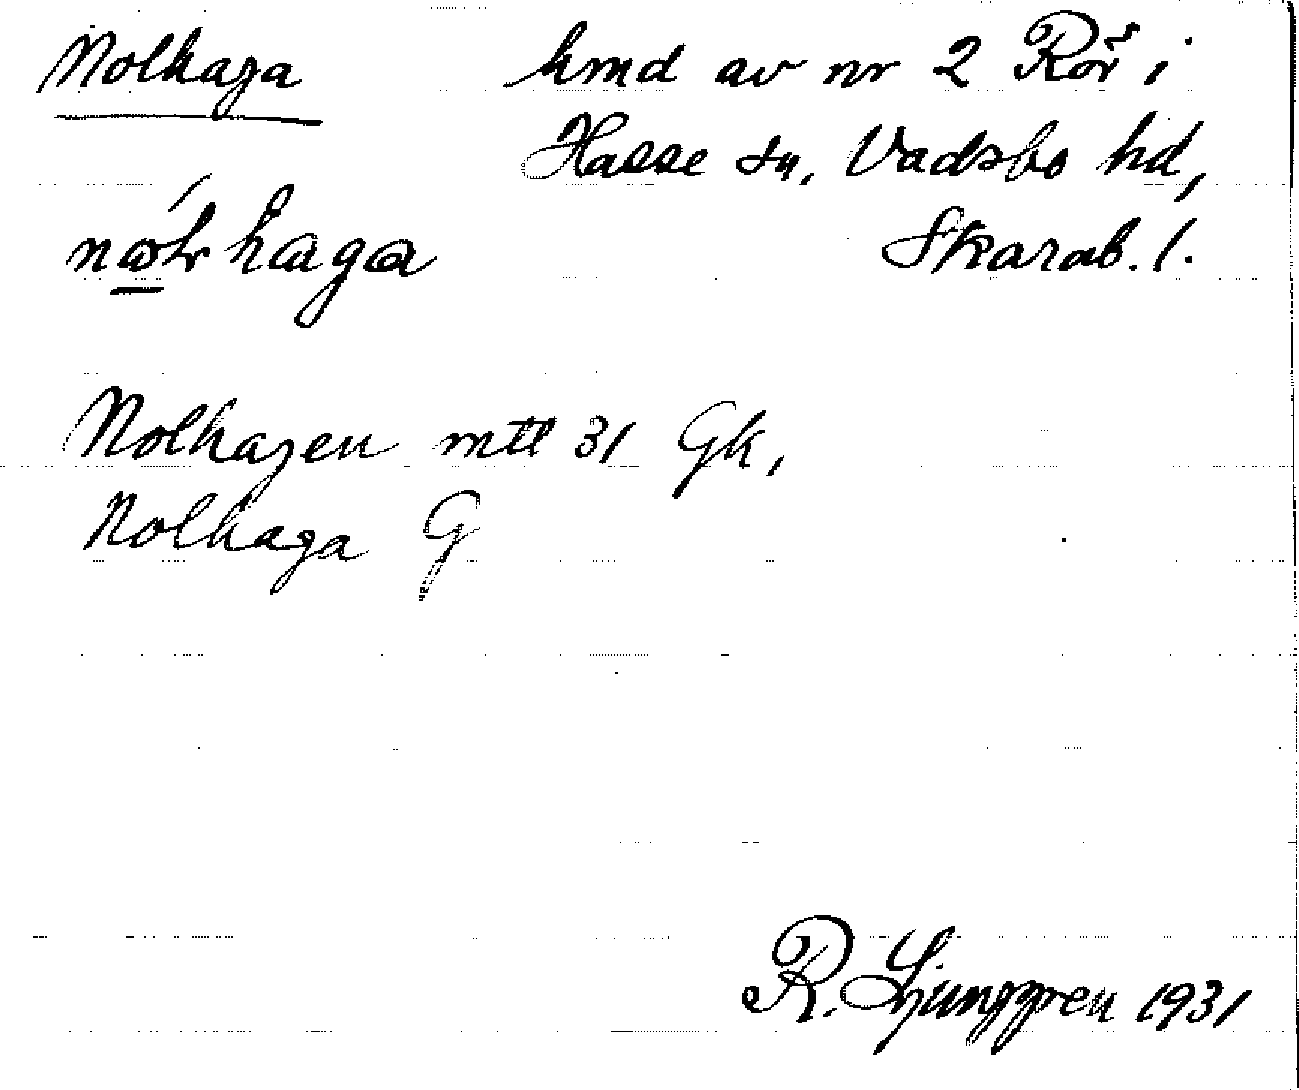 Nolhaga hmd av nr 2 Rör i
Hasse sn, Vadsbo hd,
Skarab. l.
Nolhagen mtl 31 Gk,
Nolhaga G
R. Ljunggren 1931